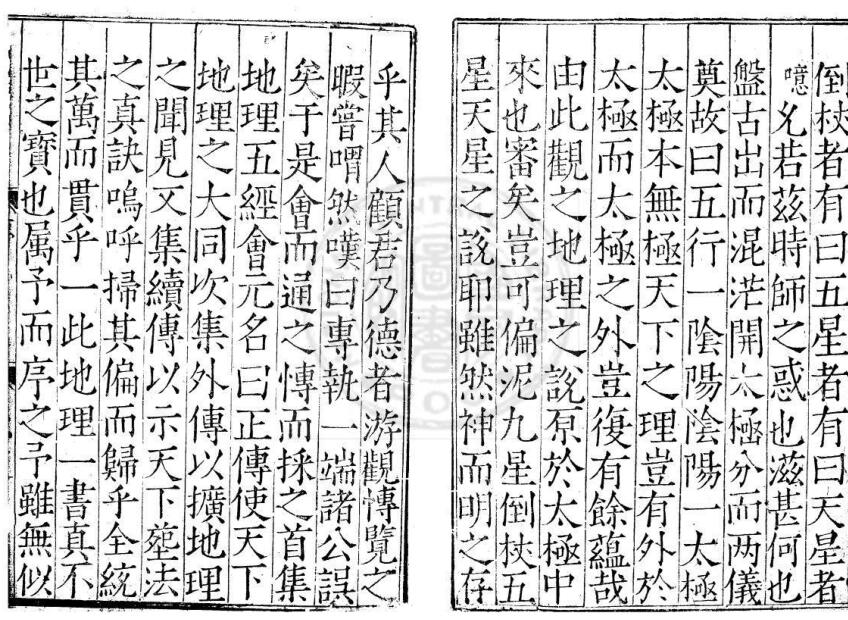 倒杖者有曰五星者有曰天星者
噫乆若茲時師之惑也滋甚何也
盤古出而混茫開太極分而两儀
奠故曰五行一陰陽陰陽一太極
太極本無極天下之理豈有外於
太極而太極之外豈復有餘蘊哉
由此觀之地理之說原於太極中
來也審矣豈可偏泥九星倒杖五
星天星之說耶雖然神而明之存
乎其人顧君乃德者游觀愽覽之
暇嘗喟然嘆曰專執一端諸公誤
矣于是會而通之愽而採之首集
地理五經會元名曰正傳使天下
地理之大同次集外傳以擴地理
之聞見又集續傳以示天下塟法
之真訣嗚呼掃其偏而歸乎全統
其萬而貫乎一此地理一書真不
世之寶也属予而序之予雖無似